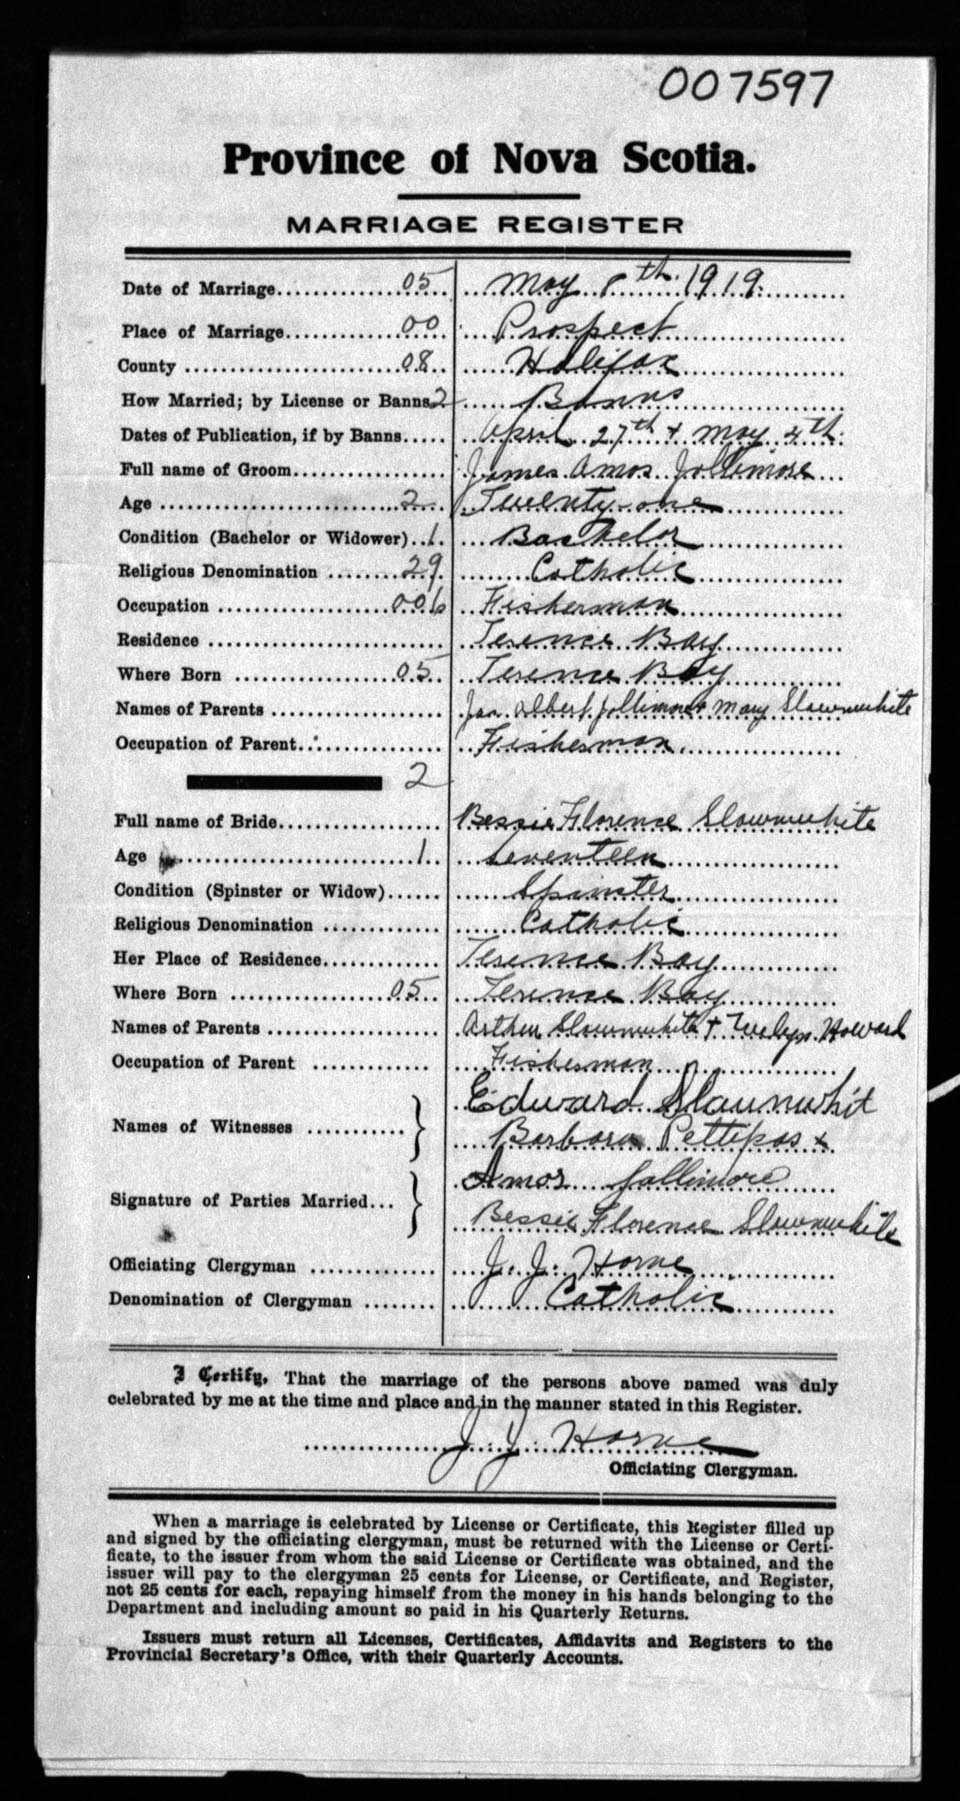 007597
Province of Nova Scotia.
MARRIAGE REGISTER
Date of Marriage 05 May th 1919.
Place of Marriage 00 Prospect
County 08 Halifax
How Married; by License or Banns 2 Banns
Dates of Publication, if by Banns April 27th + May 4th
Full name of Groom James Amos Jollimore
Age 2 Twenty-one
Condition (Bachelor or Widower) 1 Bachelor
Religious Denomination 29 Catholic
Occupation 006 Fisherman
Residence Terence Bay
Where Born 05 Terence Bay
Names of Parents Jas. Albert Jollimore + Mary Slawnwhite
Occupation of Parent Fisherman
2
Full name of Bride Bessie Florence Slawnwhite
Age 1 Seventeen
Condition (Spinster or Widow) Spinster
Religious Denomination Catholic
Her Place of Residence Terence Bay
Where Born 05 Terence Bay
Names of Parents Arthur Slawnwhite + Evelyn Howard
Occupation of Parent Fisherman
Names of Witnesses Edward Slaunwhit
Barbara Pettipas x
Signature of Parties Married Amos Jollimore
Bessie Florence Slawnwhite
Officiating Clergyman J. J. Horne
Denomination of Clergyman Catholic
I Certify, That the marriage of the persons above named was duly
celebrated by me at the time and place and in the manner stated in this Register.
J. J. Horne
Officiating Clergyman.
When a marriage is celebrated by License or Certificate, this Register filled up
and signed by the officiating clergyman, must be returned with the License or Certi-
ficate, to the issuer from whom the said License or Certificate was obtained, and the
issuer will pay to the clergyman 25 cents for License, or Certificate, and Register,
not 25 cents for each, repaying himself from the money in his hands belonging to the
Department and including amount so paid in his Quarterly Returns.
Issuers must return all Licenses, Certificates, Affidavits and Registers to the
Provincial Secretary's Office, with their Quarterly Accounts.